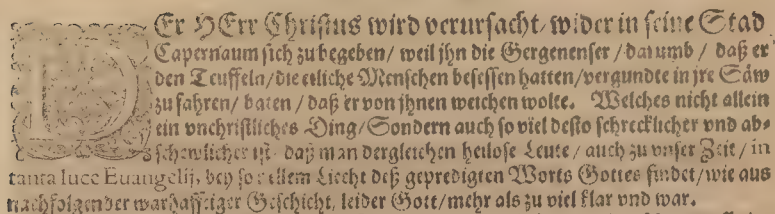 DEr HErr Christus wird verursacht / wider in seine Stad
Capernaum sich zu begeben / weil jhn die Gergenenser / darumb / daß er
den Teuffeln / die etliche Menschen besessen hatten / vergundte in jre Säw
zu fahren / baten / daß er von jhnen weichen wolte. Welches nicht allein
ein vnchristliches Ding / Sondern auch so viel desto schrecklicher vnd ab⸗
schewlicher ist / daß man dergleichen heilose Leute / auch zu vnser Zeit / in
tanta luce Euangelij, bey so hellem Liecht deß gepredigten Worts Gottes findet / wie aus
nachfolgender warhafftiger Geschicht, leider Gott / mehr als zu viel klar vnd war.